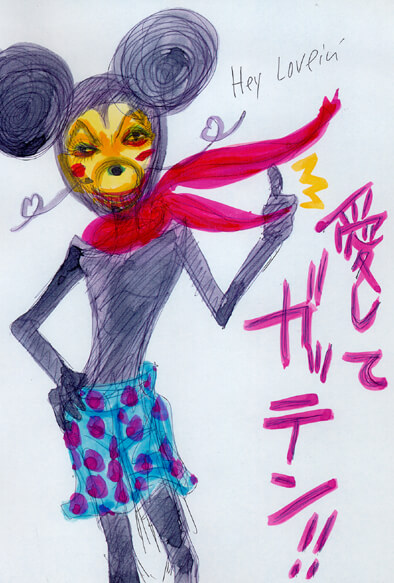 Hey Lovein'
愛して
ガッテン!!